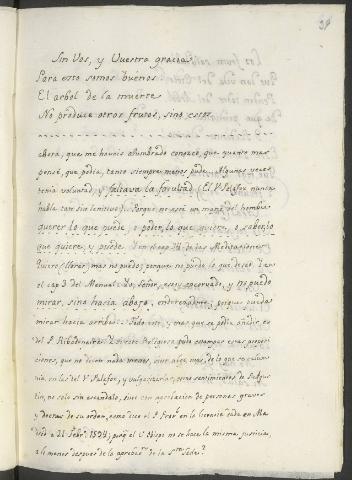 39
Sin Vos, y Vuestra gracia
Para esto somos buenos
El arbol de la muerte
No produce otros frutos, sino estos
ahora, que me haveis alumbrado conozco, que quanto mas
pensé, que podia, tanto siempre menos pude. Algunas veces
tenia voluntad, y faltava la facultad. (El V. Palafox nunca
habla tan sin lenitivo). Porque no está en mano del hombre
querer lo que puede, o poder lo que quiere, o saber lo
que quiere, y puede. en el cap. de las Meditaciones
Quiero llorar, mas no puedo; porque no puedo lo que deseo. En
el cap 3 del Manual: Yo, Señor, estoy encorvado, y no puedo
mirar, sino hacia abajo, enderezadme, porque pueda
mirar hacia arriba. Todo esto, y mas que se podia añadir, es
del P. Ribadeneira: este Religioso pudo estampar estas proposi-
ciones, que no dicen nada menos, sino algo mas, de lo que se calum-
nia en las del V. Palafox, y vulgarizarlas, como sentimientos de S. Agus-
tin, no solo sin escandalo, sino con aprobacion de personas graves
y doctas de su orden, como dice el P. en la licencia dada en Ma-
drid a 21 Febr. 1594; y al V. Obispo no se hace la misma justicia,
a lo menos despues de la aprobac. de la Sta Sede?